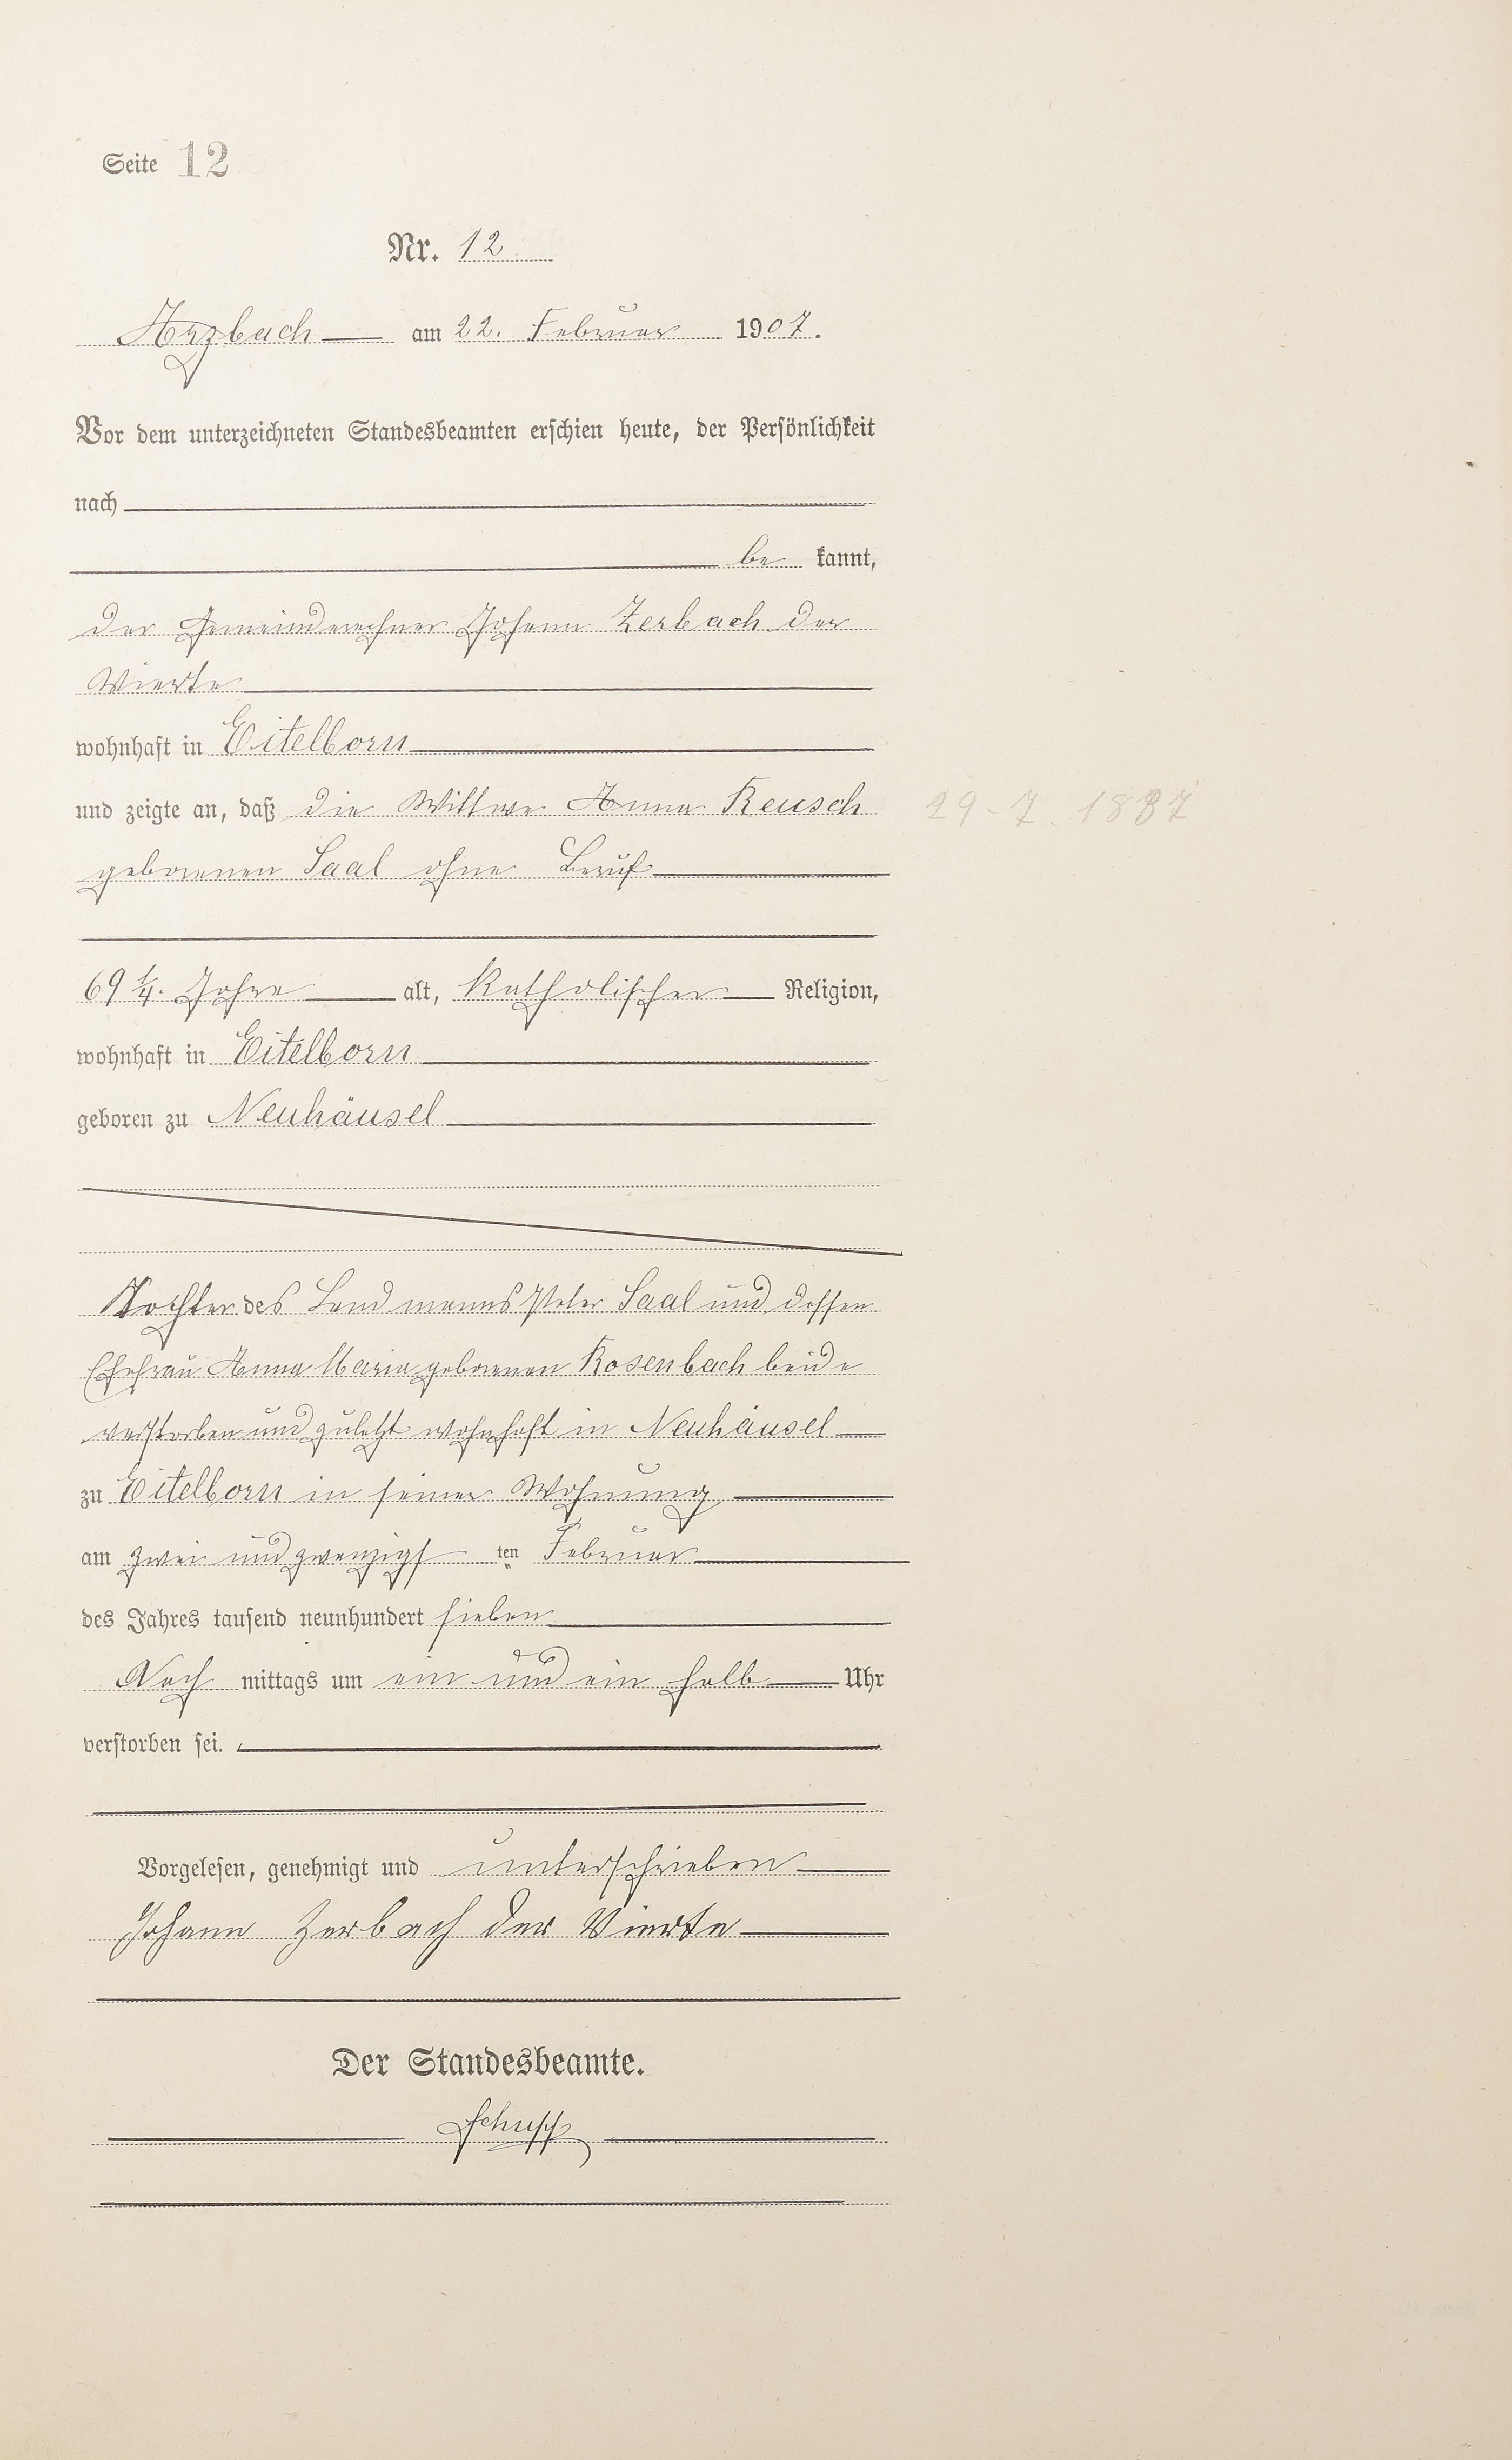 Seite 12
Nr. 12
Arzbach am 22. Februar 1907.
Vor dem unterzeichneten Standesbeamten erschien heute, der Persönlichkeit
nach
be kannt,
der Gemeinderechner Johann Zerbach der
Vierte
wohnhaft in Eitelborn
und zeigte an, daß die Wittwe Anna Reusch 29-7.1837
geborenen Saal ohne Beruf
69 1/4. Jahre alt, Katholischer Religion,
wohnhaft in Eitelborn
geboren zu Neuhäusel
Tochter des Landmanns Peter Saal und dessen
Ehefrau Anna Maria geborenen Rosenbach beide
verstorben und zuletzt wohnhaft in Neuhäusel
zu Eitelborn in seiner Wohnung
am zwei und zwanzigst ten Februar
des Jahres tausend neunhundert sieben
Nach mittags um ein und ein halb Uhr
verstorben sei.
Vorgelesen, genehmigt und unterschrieben
Johann Zerbach der Vierte
Der Standesbeamte.
Schupp